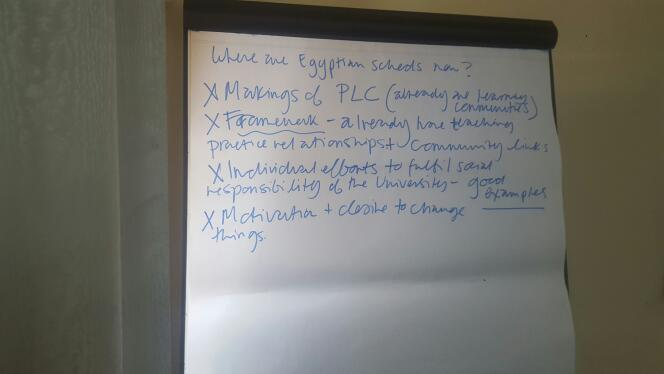 Where are Egyptian schools now?
X Makings of PLC (already are learning
communities)
X Framework - already have teaching
practice relationships + community links
X Individual efforts to fulfil social
responsibility of the University - good
examples
X Motivation + desire to change
things.